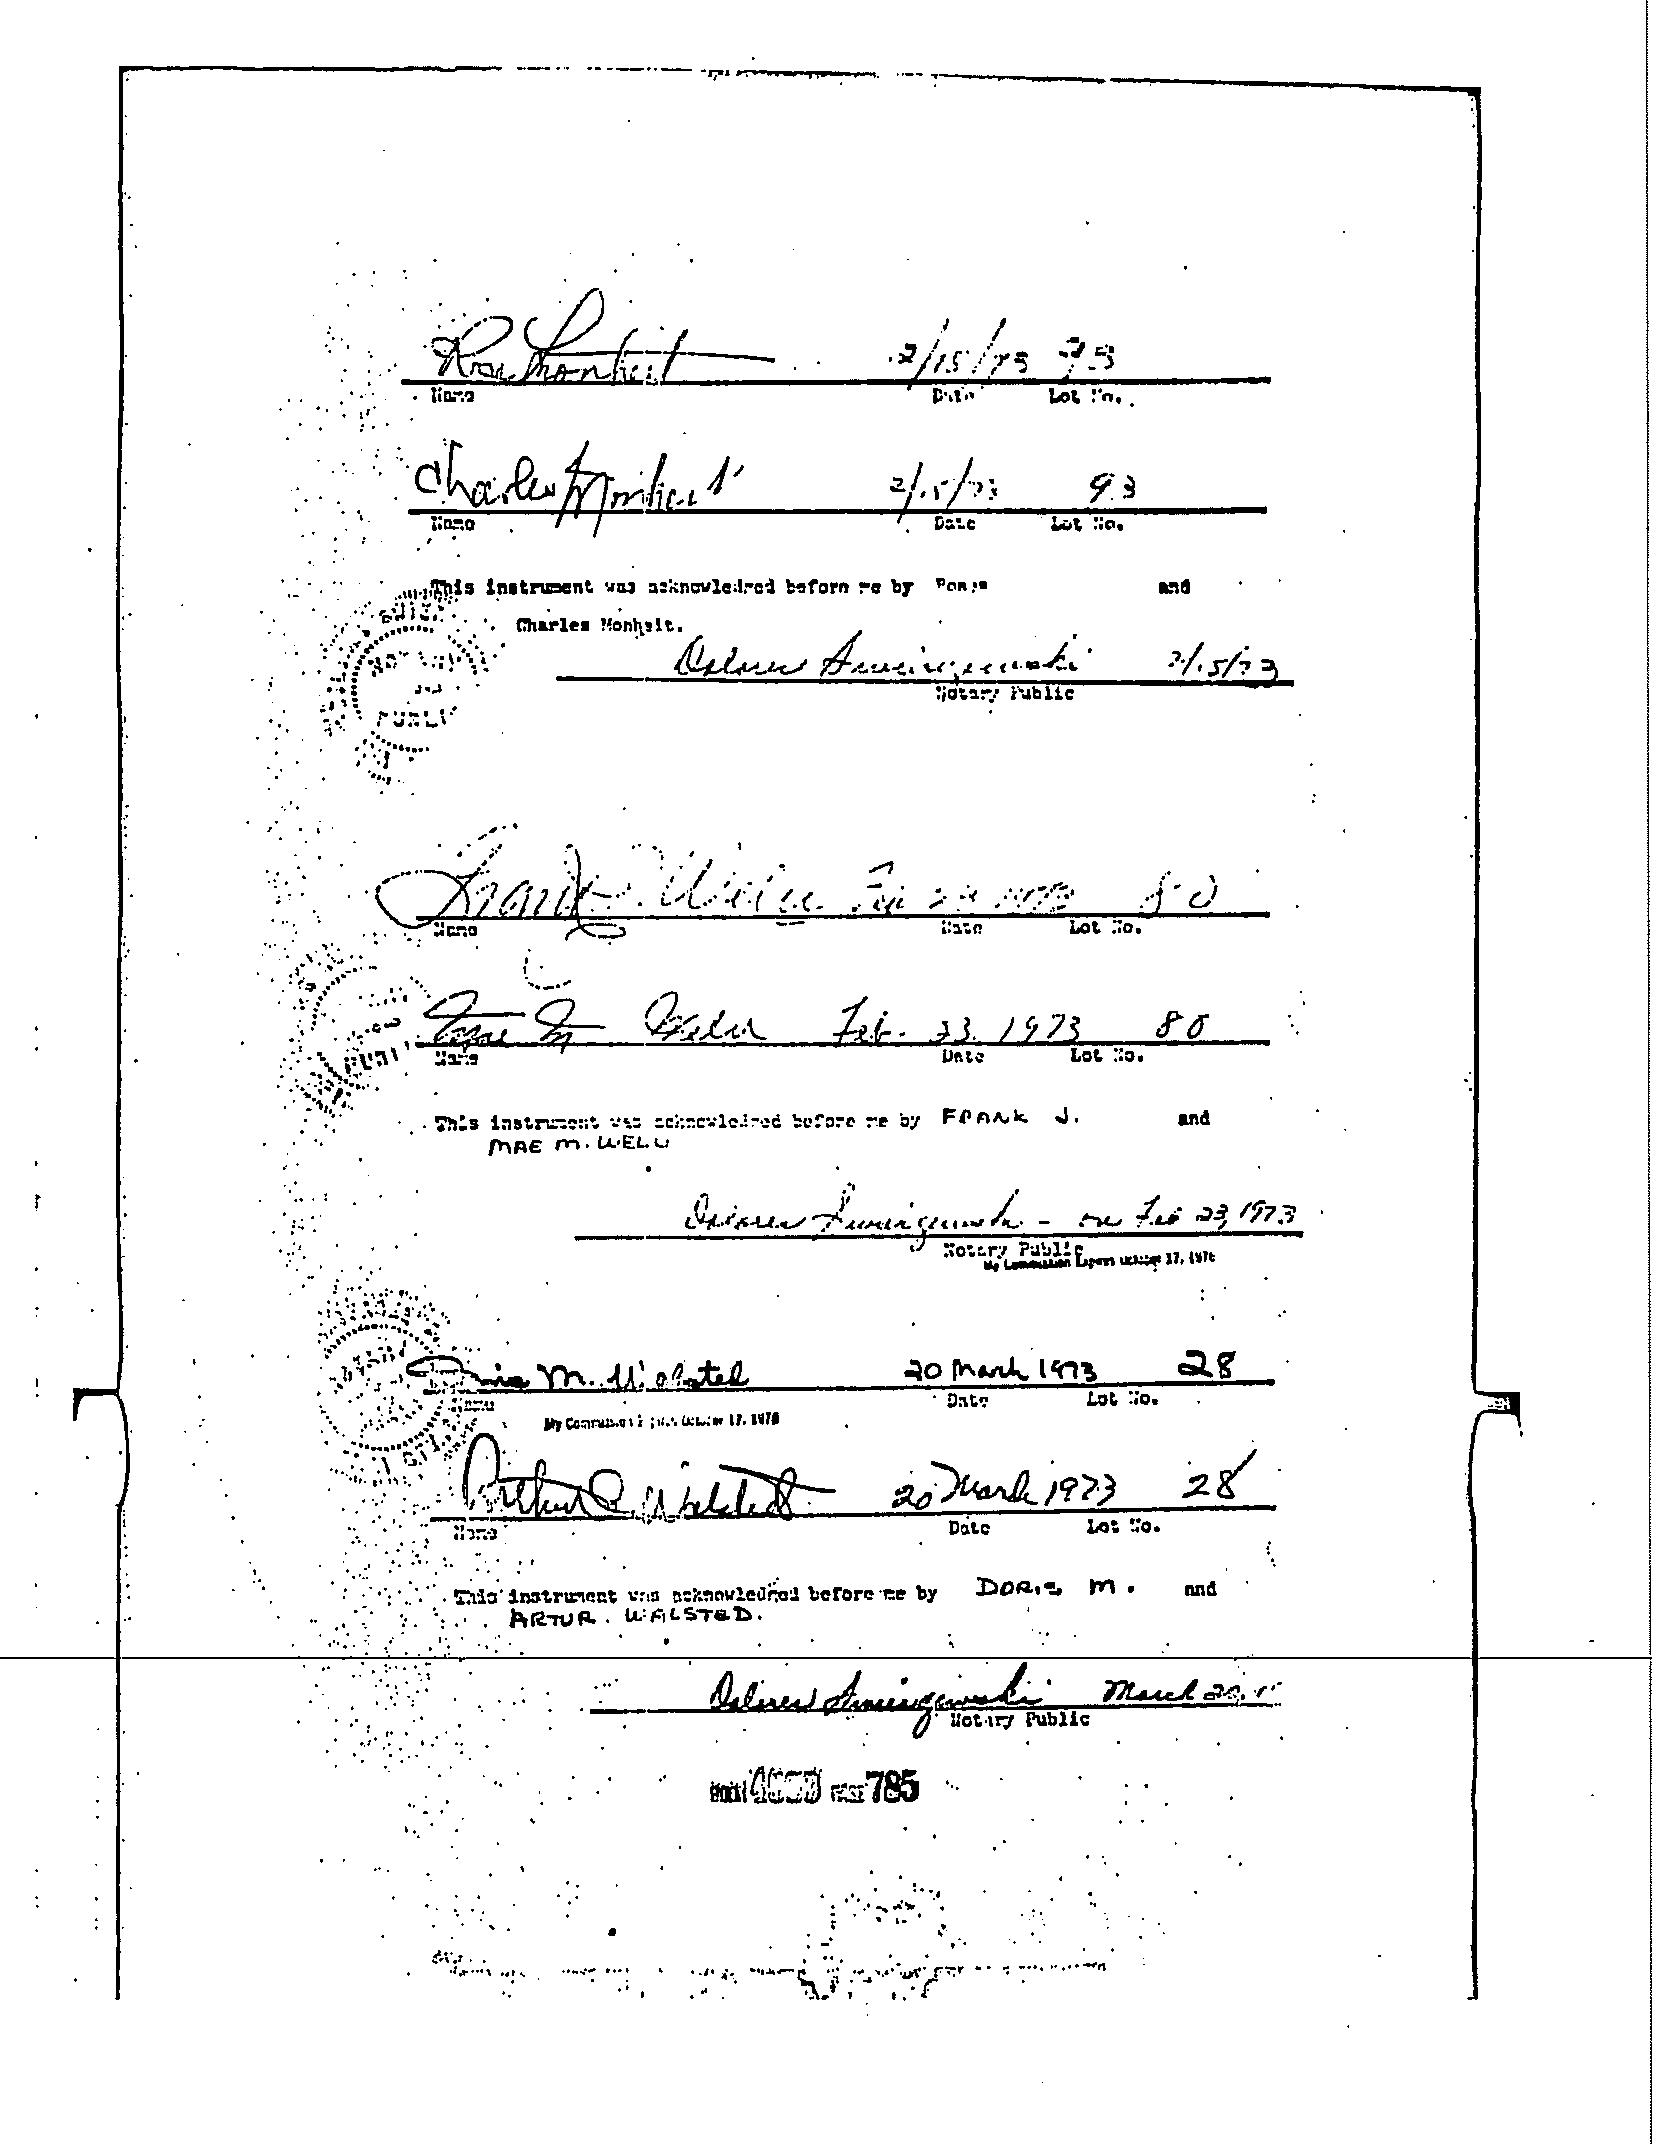 Rose Monheit 2/15/73 93
Name Date Lot No.
Charles Monheit 2/15/73 93
Name Date Lot No.
This instrument was acknowledged before me by and
Charles Monheit.
Dolores 2/15/73
Notary Public
PUBLI
Frank J. 80
Name Date Lot No.
Mae M. Feb. 23, 1973 80
Name Date Lot No.
This instrument was acknowledged before me by FRANK J. and
MAE M. WELU
Dolores - on Feb 23, 1973
Notary Public
My Commission Expires October 17, 1976
Doris M. Walsted 20 March 1973 28
Name Date Lot No.
My Commission Expires October 17, 1976
Arthur Walsted 20 March 1973 28
Name Date Lot No.
This instrument was acknowledged before me by DORIS M. and
ARTUR. WALSTED.
Dolores March 20,
Notary Public
785